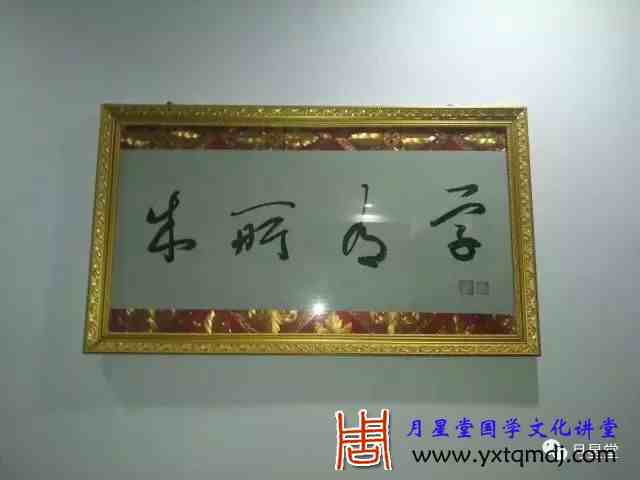 学有所成
月星堂国学文化讲堂
月星堂
www.yxtqmdj.com